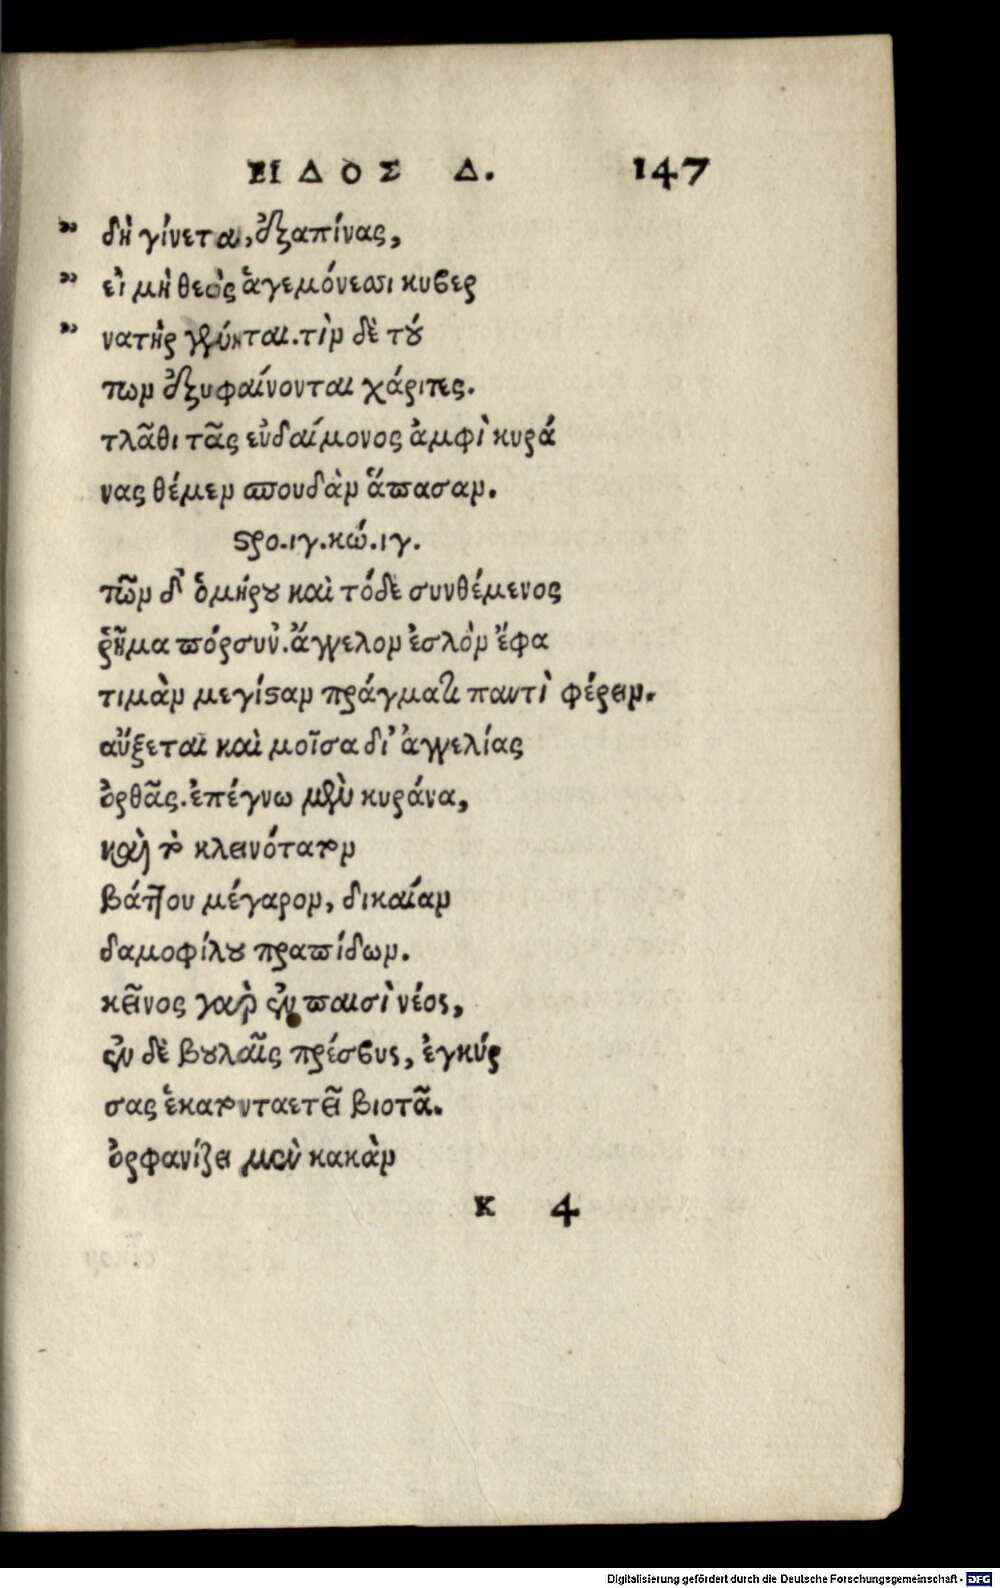 ΕΙΔΟΣ Δ. 147
” δὴ γίνεται, ἐξαπίνας,
” εἰ μὴ θεὸς ἁγεμόνεσσι κυβερ
” νατὴρ γένηται. τὶν δὲ τού
των ἐξυφαίνονται χάριτες.
τλᾶθι τᾶς εὐδαίμονος ἀμφὶ κυρά
νας θέμεν σπουδὰν ἅπασαν.
στρο. ιγ. κώ. ιγ.
τῶν δ' ὁμήρου καὶ τόδε συνθέμενος
ῥῆμα πόρσυν'. ἄγγελον ἐσλὸν ἔφα
τιμὰν μεγίσταν πράγματι παντὶ φέρειν.
αὔξεται καὶ μοῖσα δι' ἀγγελίας
ὀρθᾶς. ἐπέγνω μὲν κυράνα,
καὶ τὸ κλεινότατον
βάττου μέγαρον, δικαίαν
δαμοφίλου πραπίδων.
κεῖνος γὰρ ἐν παισὶ νέος,
ἐν δὲ βουλαῖς πρέσβυς, ἐγκύρ
σας ἑκατονταετεῖ βιοτᾷ.
ὀρφανίζει μὲν κακὰν
K 4
Digitalisierung gefördert durch die Deutsche Forschungsgemeinschaft - DFG